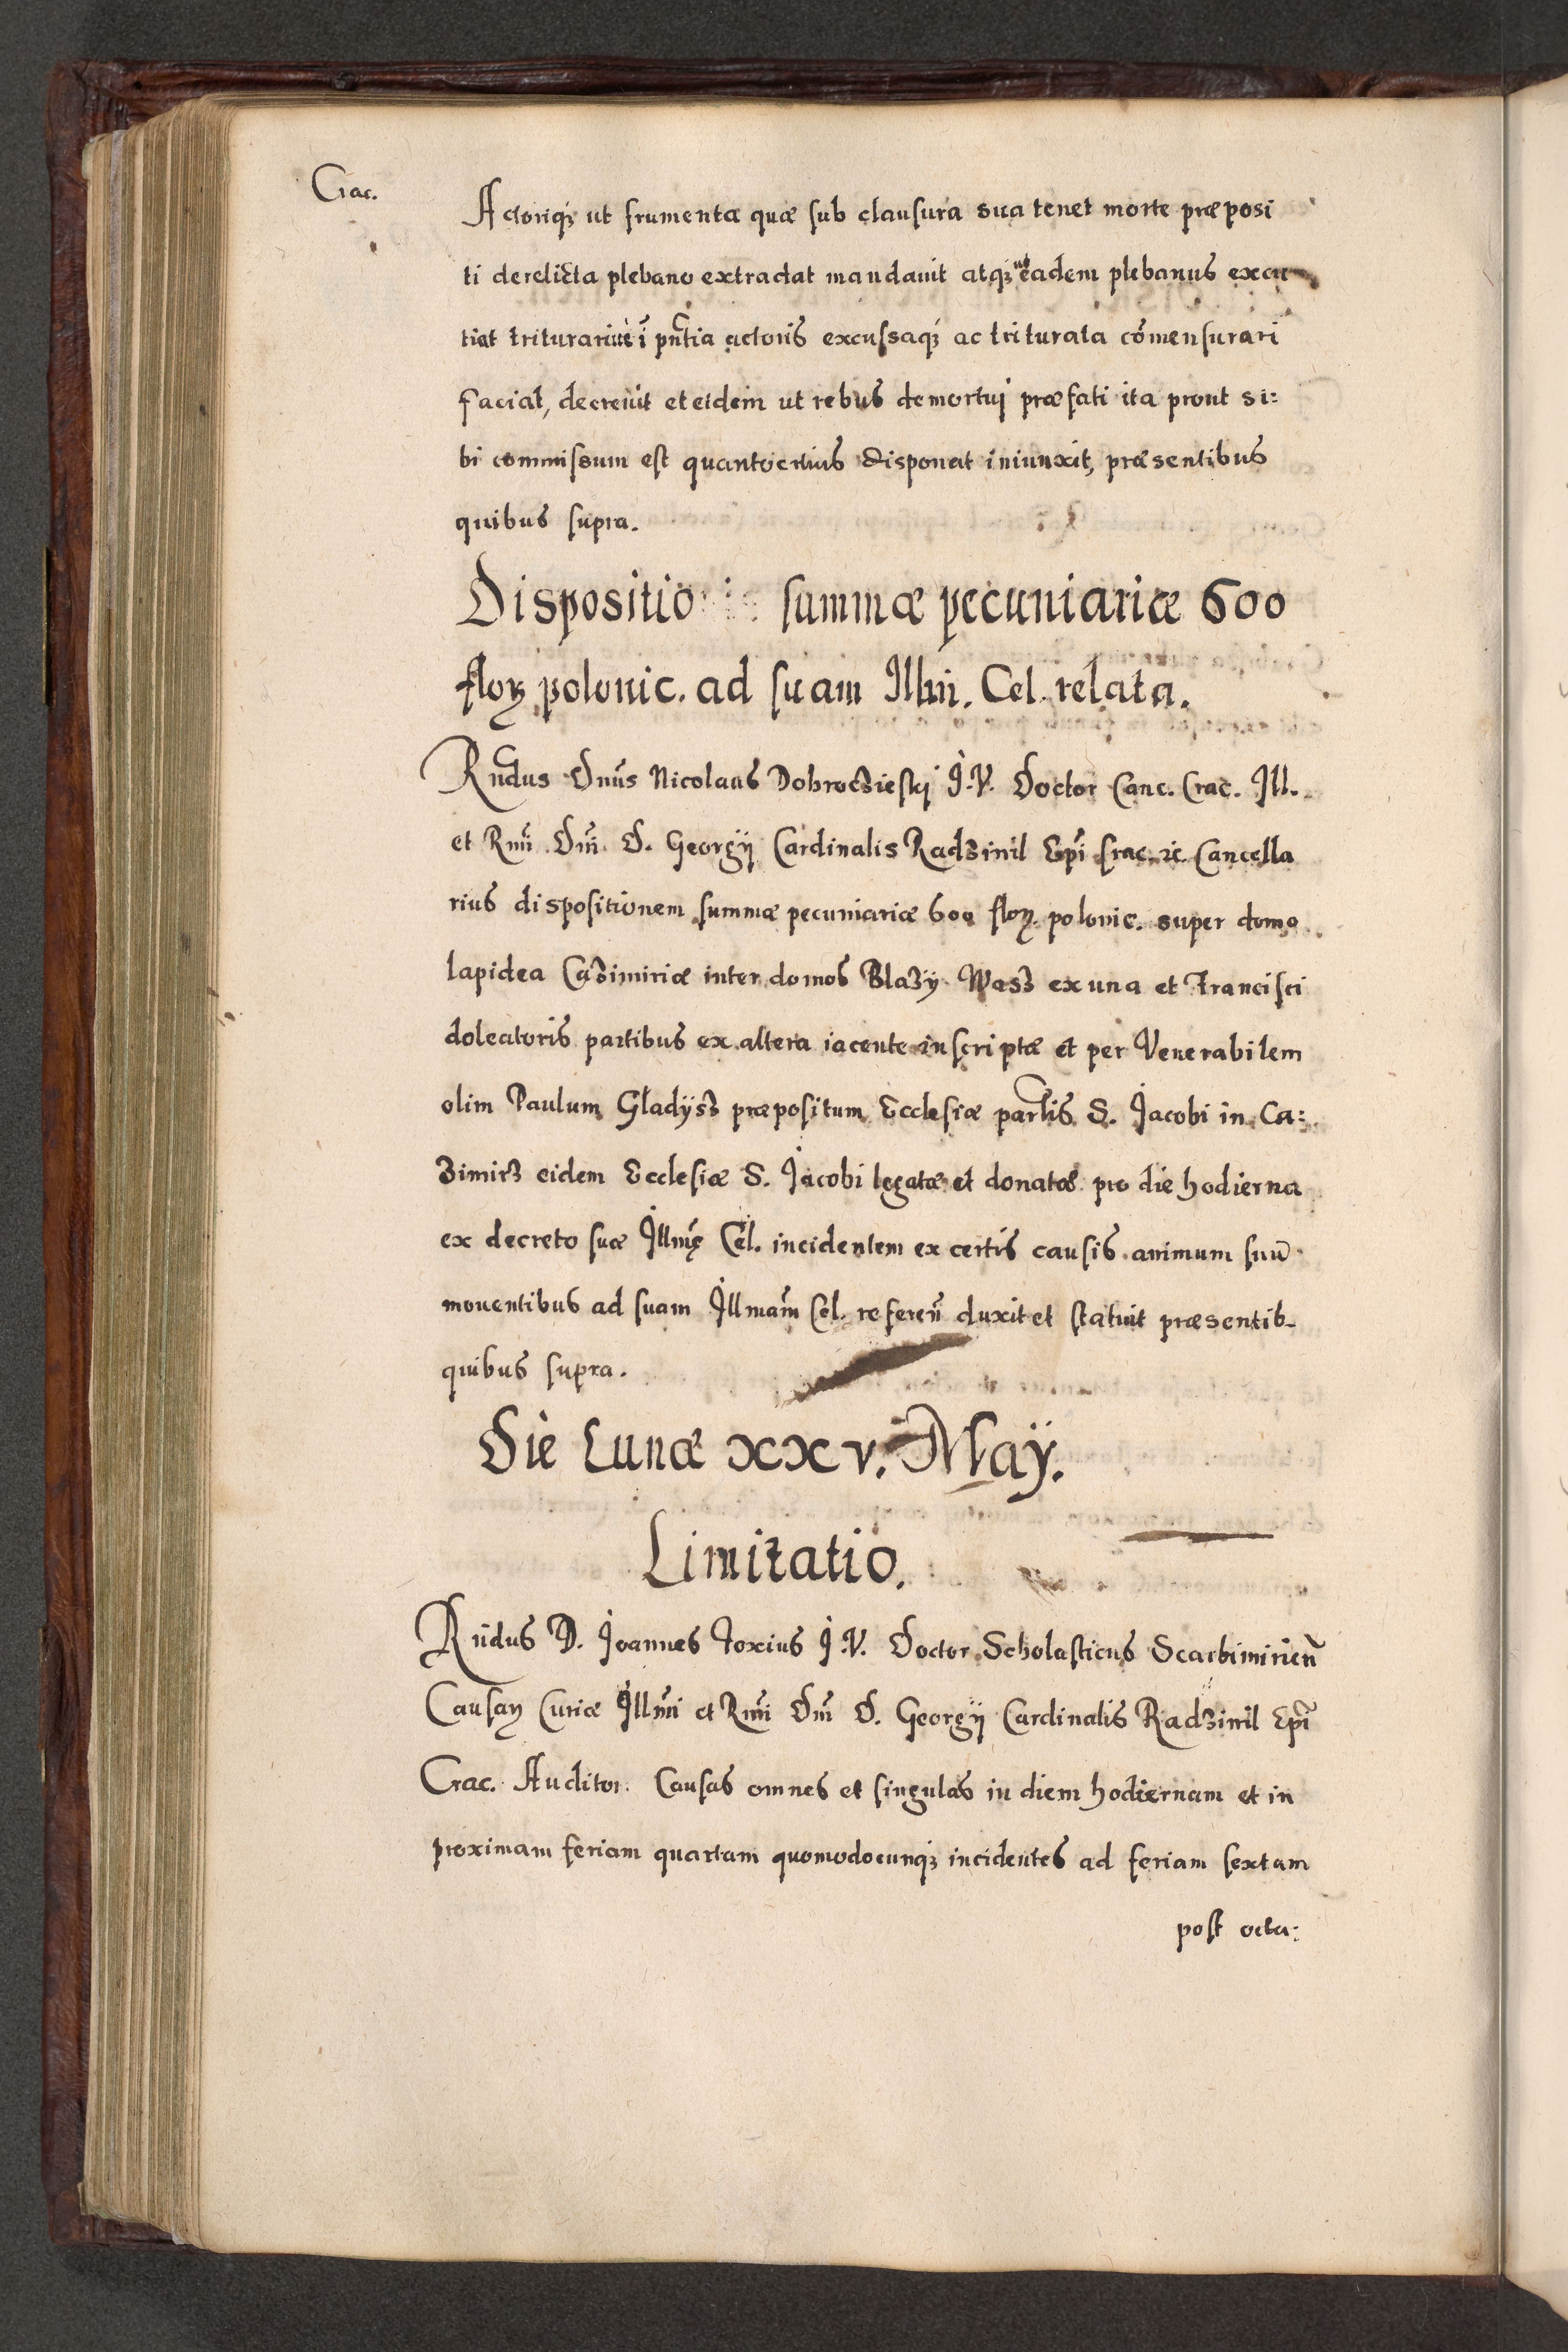 Crac.
Actoriq₃ ut frumenta quæ sub clausura sua tenet morte præposi
ti derelicta plebano extradat mandauit atq₃ ut eadem plebanus excu
tiat triturariue ī pn̄tia actoris excussaq₃ ac triturata com̄ensurari
faciat, decreuit et eidem ut rebus demortuj præfati ita prout si:
bi commissum est quantocitius disponat iniunxit, præsentibus
quibus supra.
Dispositio summæ pecuniariæ 600
floꝝ polonic. ad suam Illm̄. Cel. relata.
Rn̄dus Dn̄us Nicolaus Dobroczieskj J.V. Doctor Canc. Crac. Ill.
et Rm̄i Dn̄i D. Georgÿ Cardinalis Radziuil Ep̄i Crac. ꝛc. Cancella
rius dispositionem summæ pecuniariæ 600 floꝝ. polonic. super domo
lapidea Casimiriæ inter domos Blazÿ Wass ex una et Francisci
doleatoris partibus ex altera iacente inscriptæ et per Venerabilem
olim Paulum Gladÿsz præpositum Ecclesiæ parlis S. Jacobi in Ca:
zimirz eidem Ecclesiæ S. Jacobi legatæ et donatæ pro die hodierna
ex decreto suæ Illmę Cel. incidentem ex certis causis animum suū
mouentibus ad suam Illmam̄ Cel. referen̄ duxit et statuit præsentib.
quibus supra.
Die Lunæ xxv. Maÿ.
Limitatio.
Rn̄dus D. Joannes Foxius J.V. Doctor Scholasticus Scarbimirien̄
Causaꝝ Curiæ Illm̄i et Rm̄i Dn̄i D. Georgÿ Cardinalis Radziuil Ep̄i
Crac. Auditor. Causas omnes et singulas in diem hodiernam et in
proximam feriam quartam quomodocunq₃ incidentes ad feriam sextam
post octa: